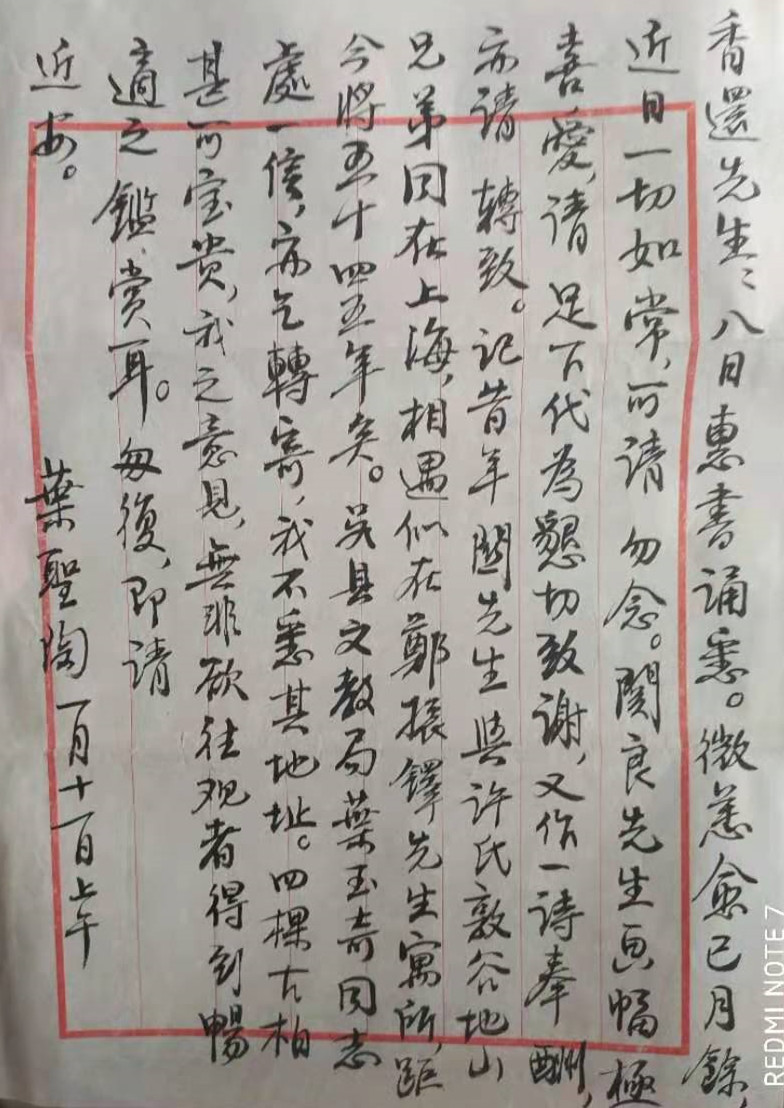 香還先生：八日惠書誦悉。微恙愈已月餘，
近日一切如常，可請勿念。關良先生畫幅極
喜愛，請足下代為懇切致謝，又作一詩奉酬，
亦請轉致。記昔年關先生與許氏敦谷地山
兄弟同在上海，相遇似在鄭振鐸先生寓所，距
今將五十四五年矣。吳縣文教局葉玉奇同志
處一信，亦乞轉寄，我不悉其地址。四棵古柏
甚可宝贵，我之意見，無非欲往观者得到暢
適之鑑賞耳。匆復，即請
近安。
葉聖陶 一月十一日上午
REDMI NOTE 7